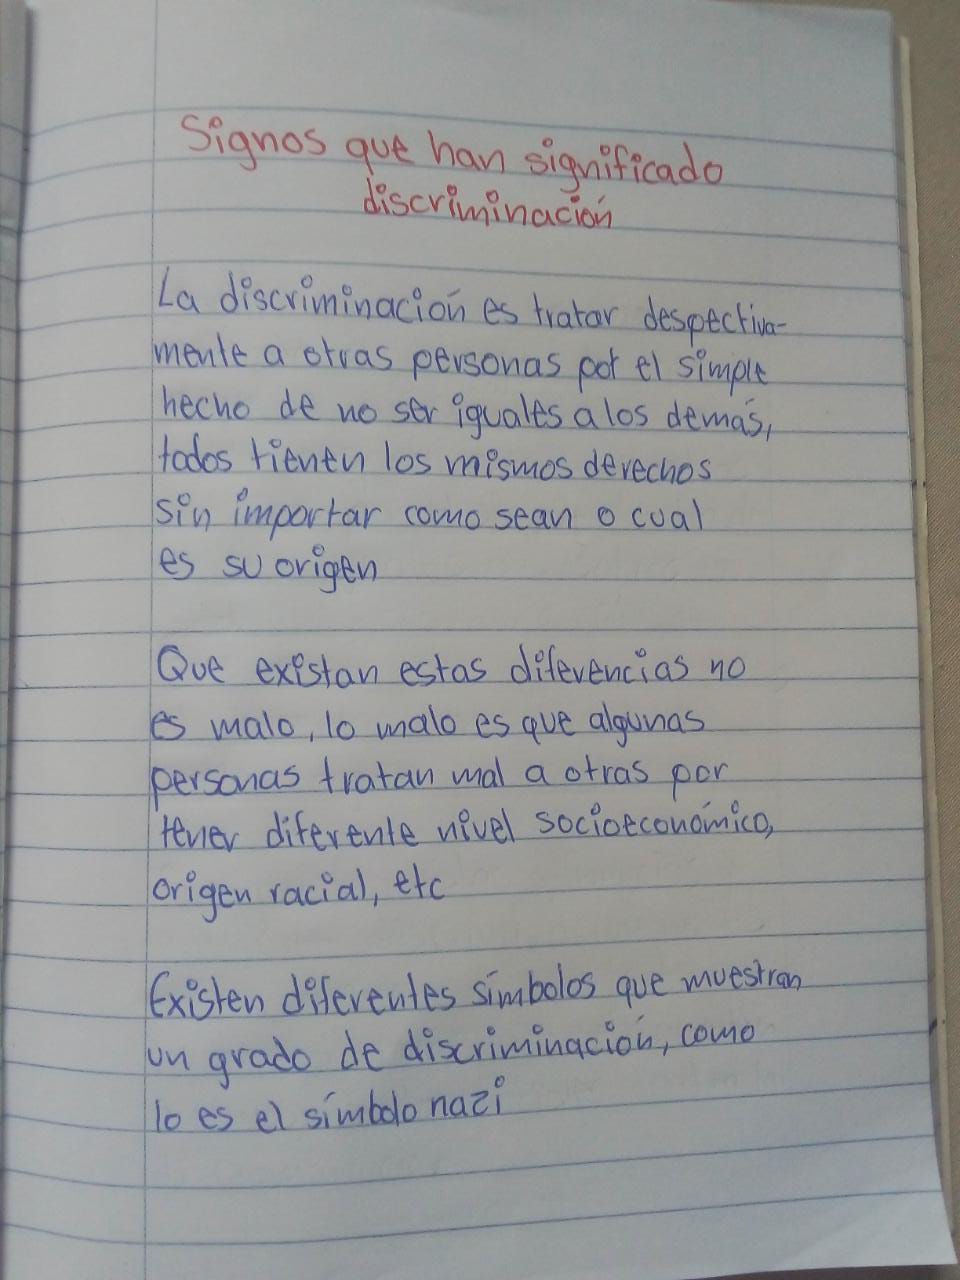 Signos que han significado
discriminación
La discriminación es tratar despectiva-
mente a otras personas por el simple
hecho de no ser iguales a los demás,
todos tienen los mismos derechos
sin importar como sean o cual
es su origen
Que existan estas diferencias no
es malo, lo malo es que algunas
personas tratan mal a otras por
tener diferente nivel socioeconómico,
origen racial, etc
Existen diferentes símbolos que muestran
un grado de discriminación, como
lo es el símbolo nazi